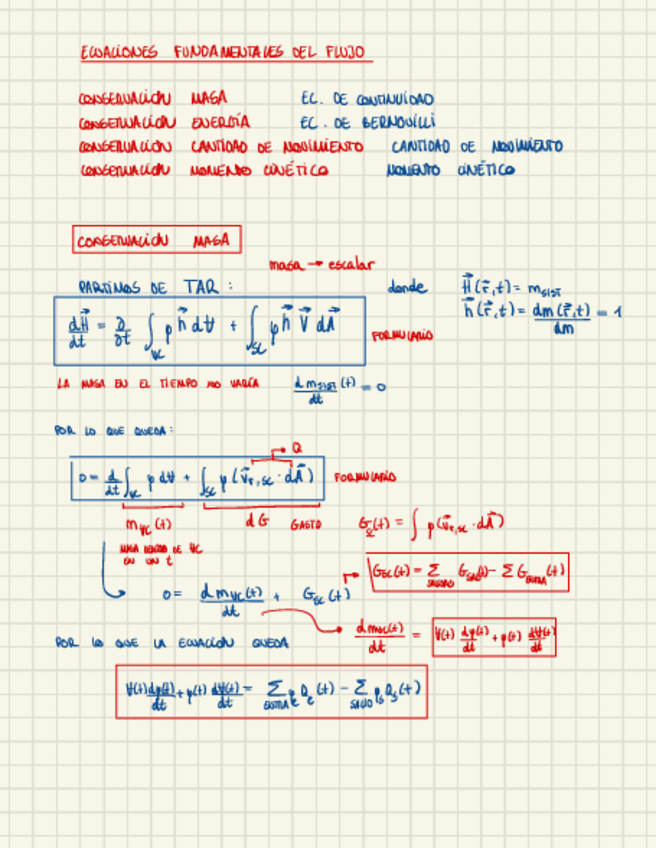 ECUACIONES FUNDAMENTALES DEL FLUJO
CONSERVACIÓN MASA EC. DE CONTINUIDAD
CONSERVACIÓN ENERGÍA EC. DE BERNOUILLI
CONSERVACIÓN CANTIDAD DE MOVIMIENTO CANTIDAD DE MOVIMIENTO
CONSERVACIÓN MOMENTO CINÉTICO MOMENTO CINÉTICO
CONSERVACIÓN MASA
masa → escalar
PARTIMOS DE TAR : donde H⃗(r⃗,t) = m_SIST
h⃗(r⃗,t) = dm(r⃗,t)/dm = 1
dH⃗/dt = ∂/∂t ∫_VC ρ h⃗ dV + ∫_SC ρ h⃗ V⃗ dA⃗ FORMULARIO
LA MASA EN EL TIEMPO NO VARÍA d m_SIST(t)/dt = 0
POR LO QUE QUEDA:
Q
0 = d/dt ∫_VC ρ dV + ∫_SC ρ (v⃗_r,SC · dA⃗) FORMULARIO
m_VC(t) dG GASTO G_SC(t) = ∫ ρ(v⃗_r,SC · dA⃗)
MASA DENTRO DE VC
EN UN t
G_SC(t) = Σ_SALIDAS G_SAL(t) - Σ G_ENTRA(t)
0 = d m_VC(t)/dt + G_SC(t)
d m_VC(t)/dt = V(t) dρ(t)/dt + ρ(t) dV(t)/dt
POR LO QUE LA ECUACIÓN QUEDA
V(t) dρ(t)/dt + ρ(t) dV(t)/dt = Σ_ENTRA ρ_e Q_e(t) - Σ_SALID ρ_s Q_s(t)